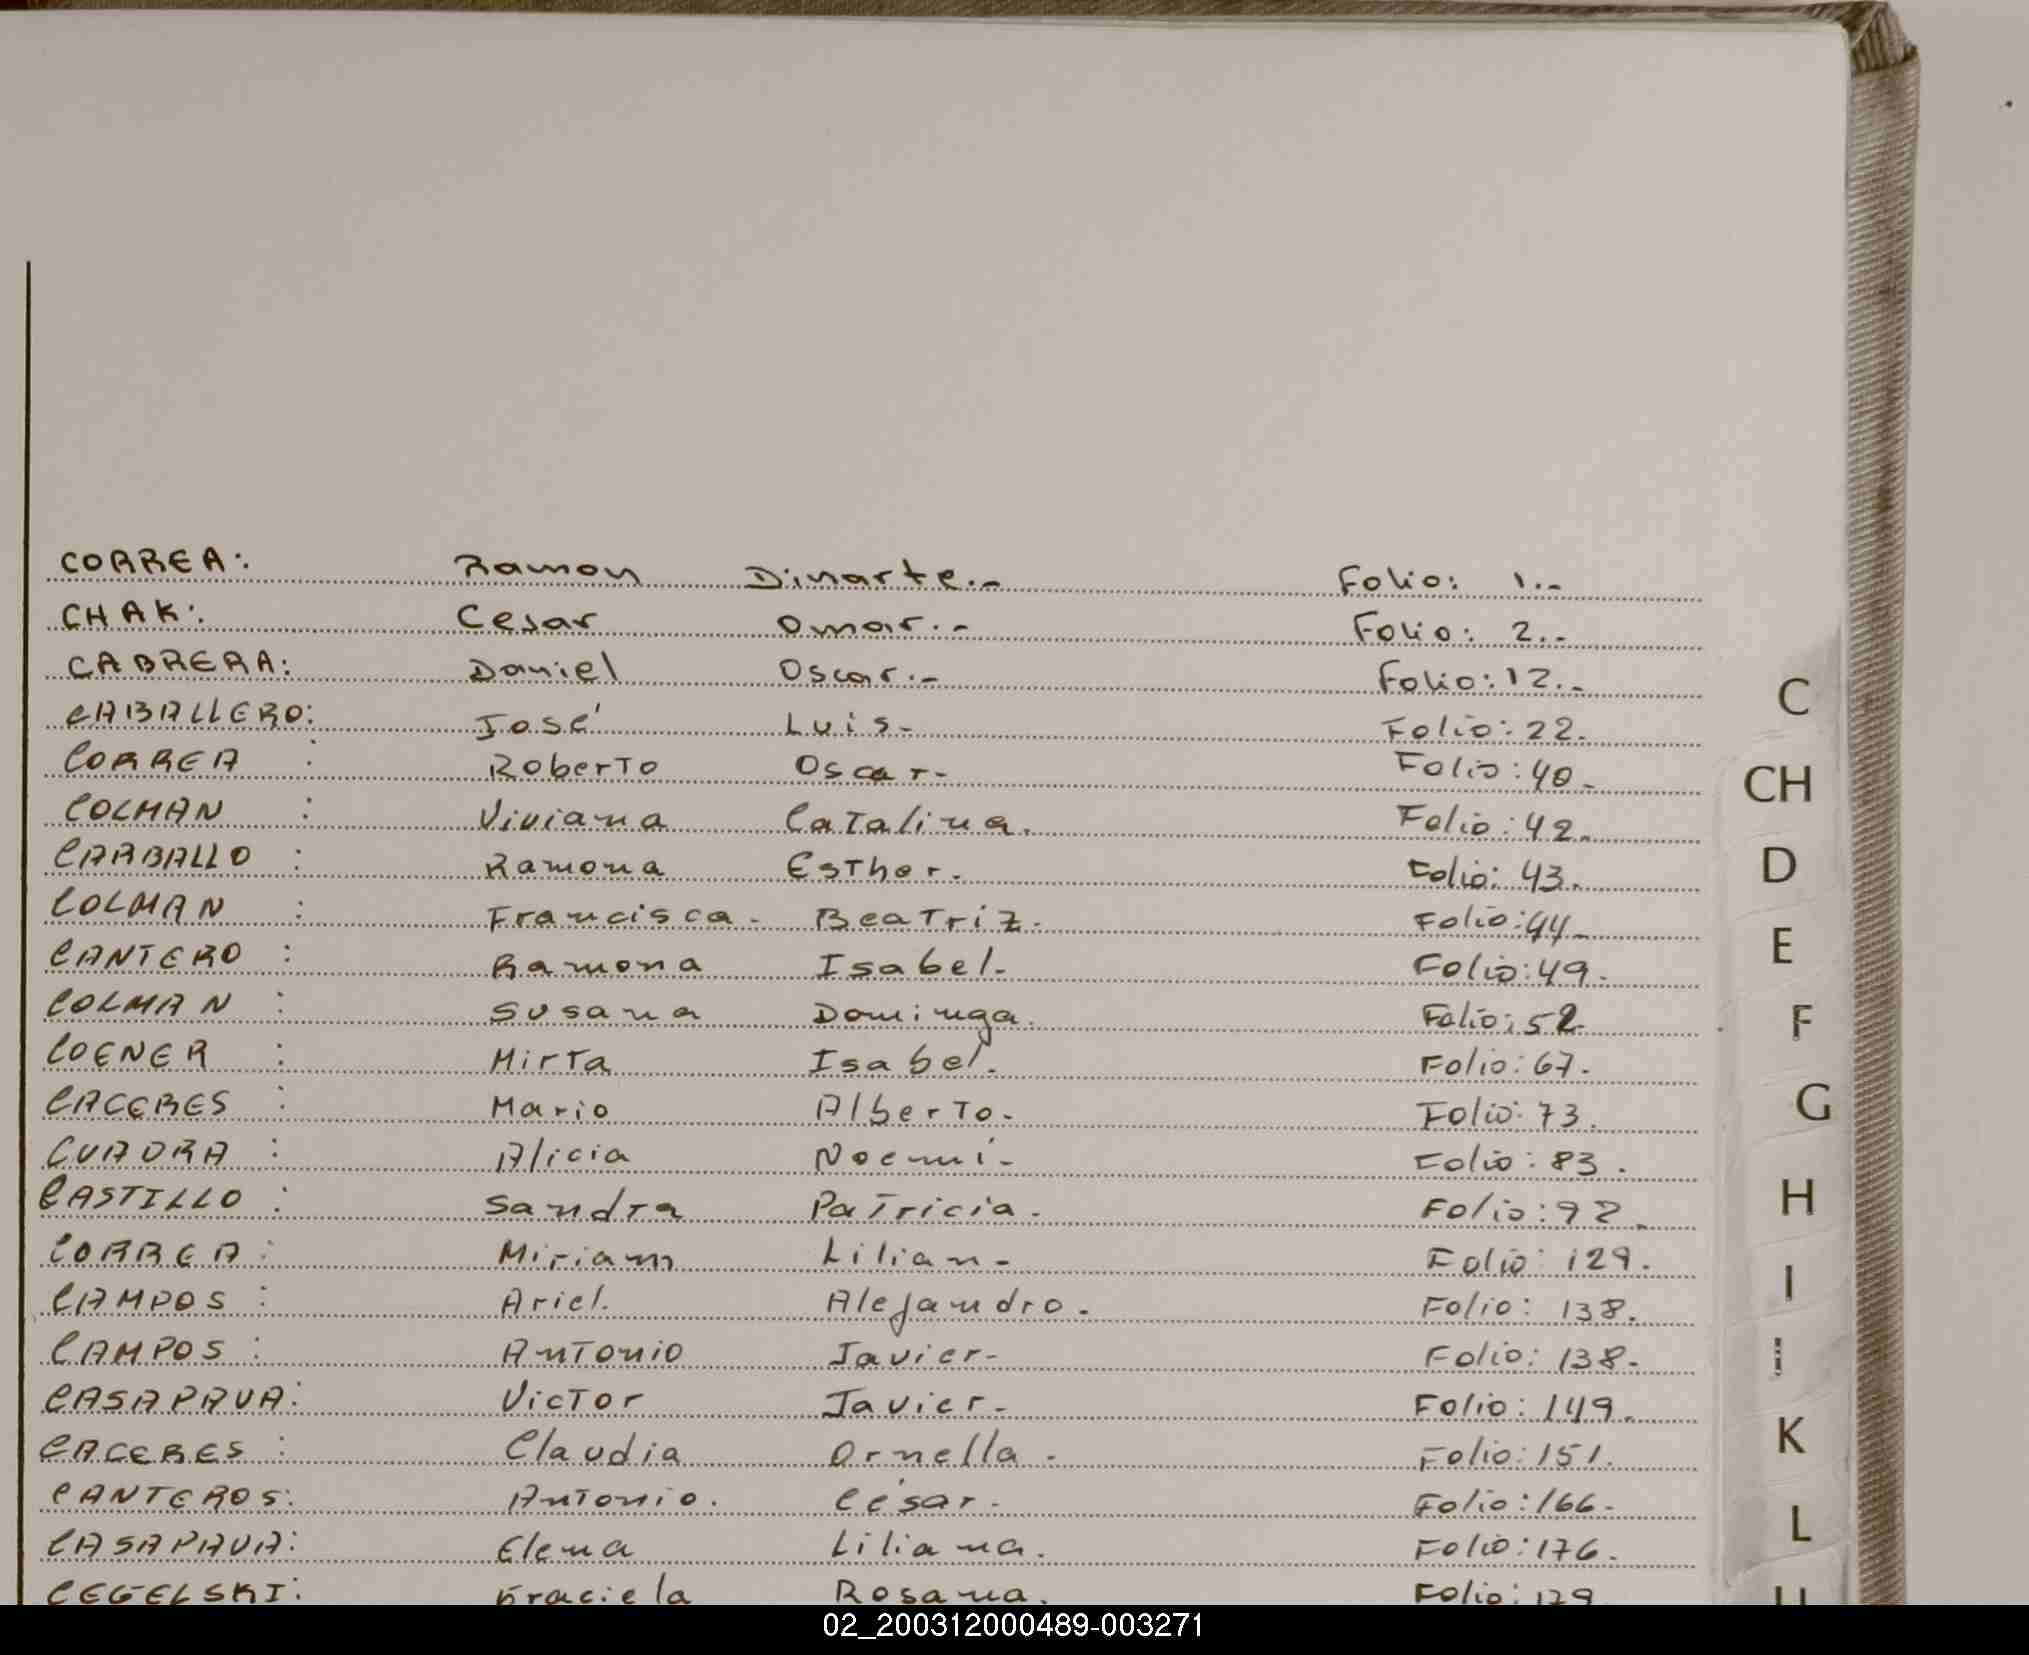 CORREA: Ramon Dinarte.- Folio: 1.-
CHAK: Cesar Omar.- Folio: 2.-
CABRERA: Daniel Oscar.- Folio: 12.-
CABALLERO: José Luis- Folio: 22.
CORREA : Roberto Oscar- Folio: 40.-
COLMAN : Viviana Catalina. Folio: 42.
CARBALLO : Ramona Esther. Folio: 43.
COLMAN : Francisca. Beatriz. Folio: 44-
CANTERO : Ramona Isabel. Folio: 49.
COLMAN : Susana Dominga. Folio: 52.
COENER : Mirta Isabel. Folio: 67.
CACERES : Mario Alberto. Folio: 73.
CUADRA : Alicia Noemí- Folio: 83.
CASTILLO : Sandra Patricia. Folio: 92.
CORREA : Miriam Lilian- Folio: 129.
CAMPOS : Ariel. Alejandro. Folio: 138.
CAMPOS : Antonio Javier- Folio: 138-
CASAPAVA: Victor Javier- Folio: 149.
CACERES : Claudia Ornella. Folio: 151.
CANTEROS: Antonio. César. Folio: 166.
CASAPAVA: Elena Liliana. Folio: 176.
CEGELSKI: Graciela Rosana. Folio: 179
C
CH
D
E
F
G
H
I
K
L
02_200312000489-003271